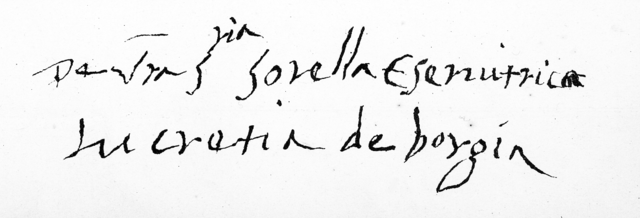 De Vra S ria Sorella E servitrica
Lucretia de borgia